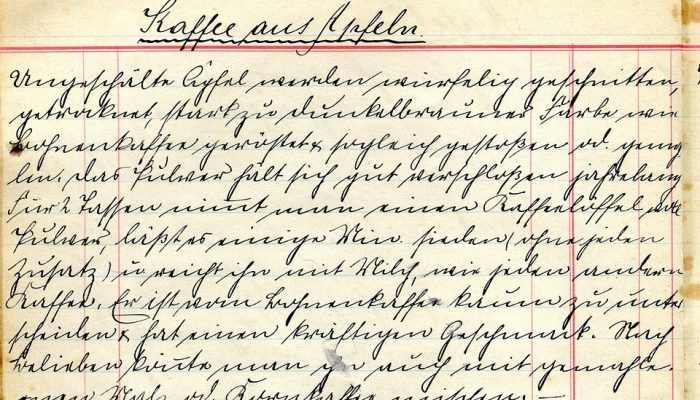 Kaffee aus Äpfeln.
Ungeschälte Äpfel werden würfelig geschnitten,
getrocknet, stark zu dunkelbrauner Farbe wie
Bohnenkaffee geröstet & sogleich gestoßen od. gemah-
len. Das Pulver hält sich gut verschloßen jahrelang
Für 2 Tassen nimmt man einen Kaffeelöffel voll
Pulver, läßt es einige Min. sieden (ohne jeden
Zusatz) u. reicht ihn mit Milch, wie jeden andern
Kaffee. Er ist vom Bohnenkaffee kaum zu unter
scheiden & hat einen kräftigen Geschmack. Nach
Belieben könnte man ihn auch mit gemahle-
nem Malz od. Kornkaffee mischen. —